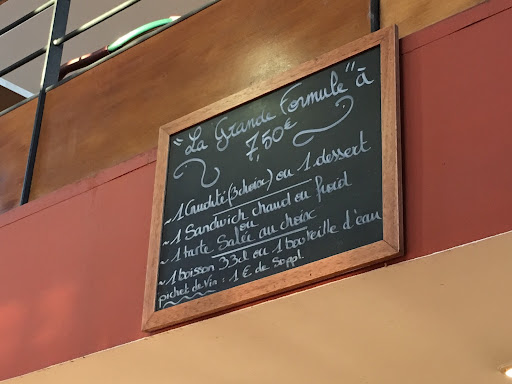 "La Grande Formule" à
7,50€
~ 1 Crudité (3 choix) ou 1 dessert
~ 1 Sandwich chaud ou froid
ou
~ 1 tarte Salée au choix
~ 1 boisson 33cl ou 1 bouteille d'eau
pichet de Vin : 1 € de Suppl.